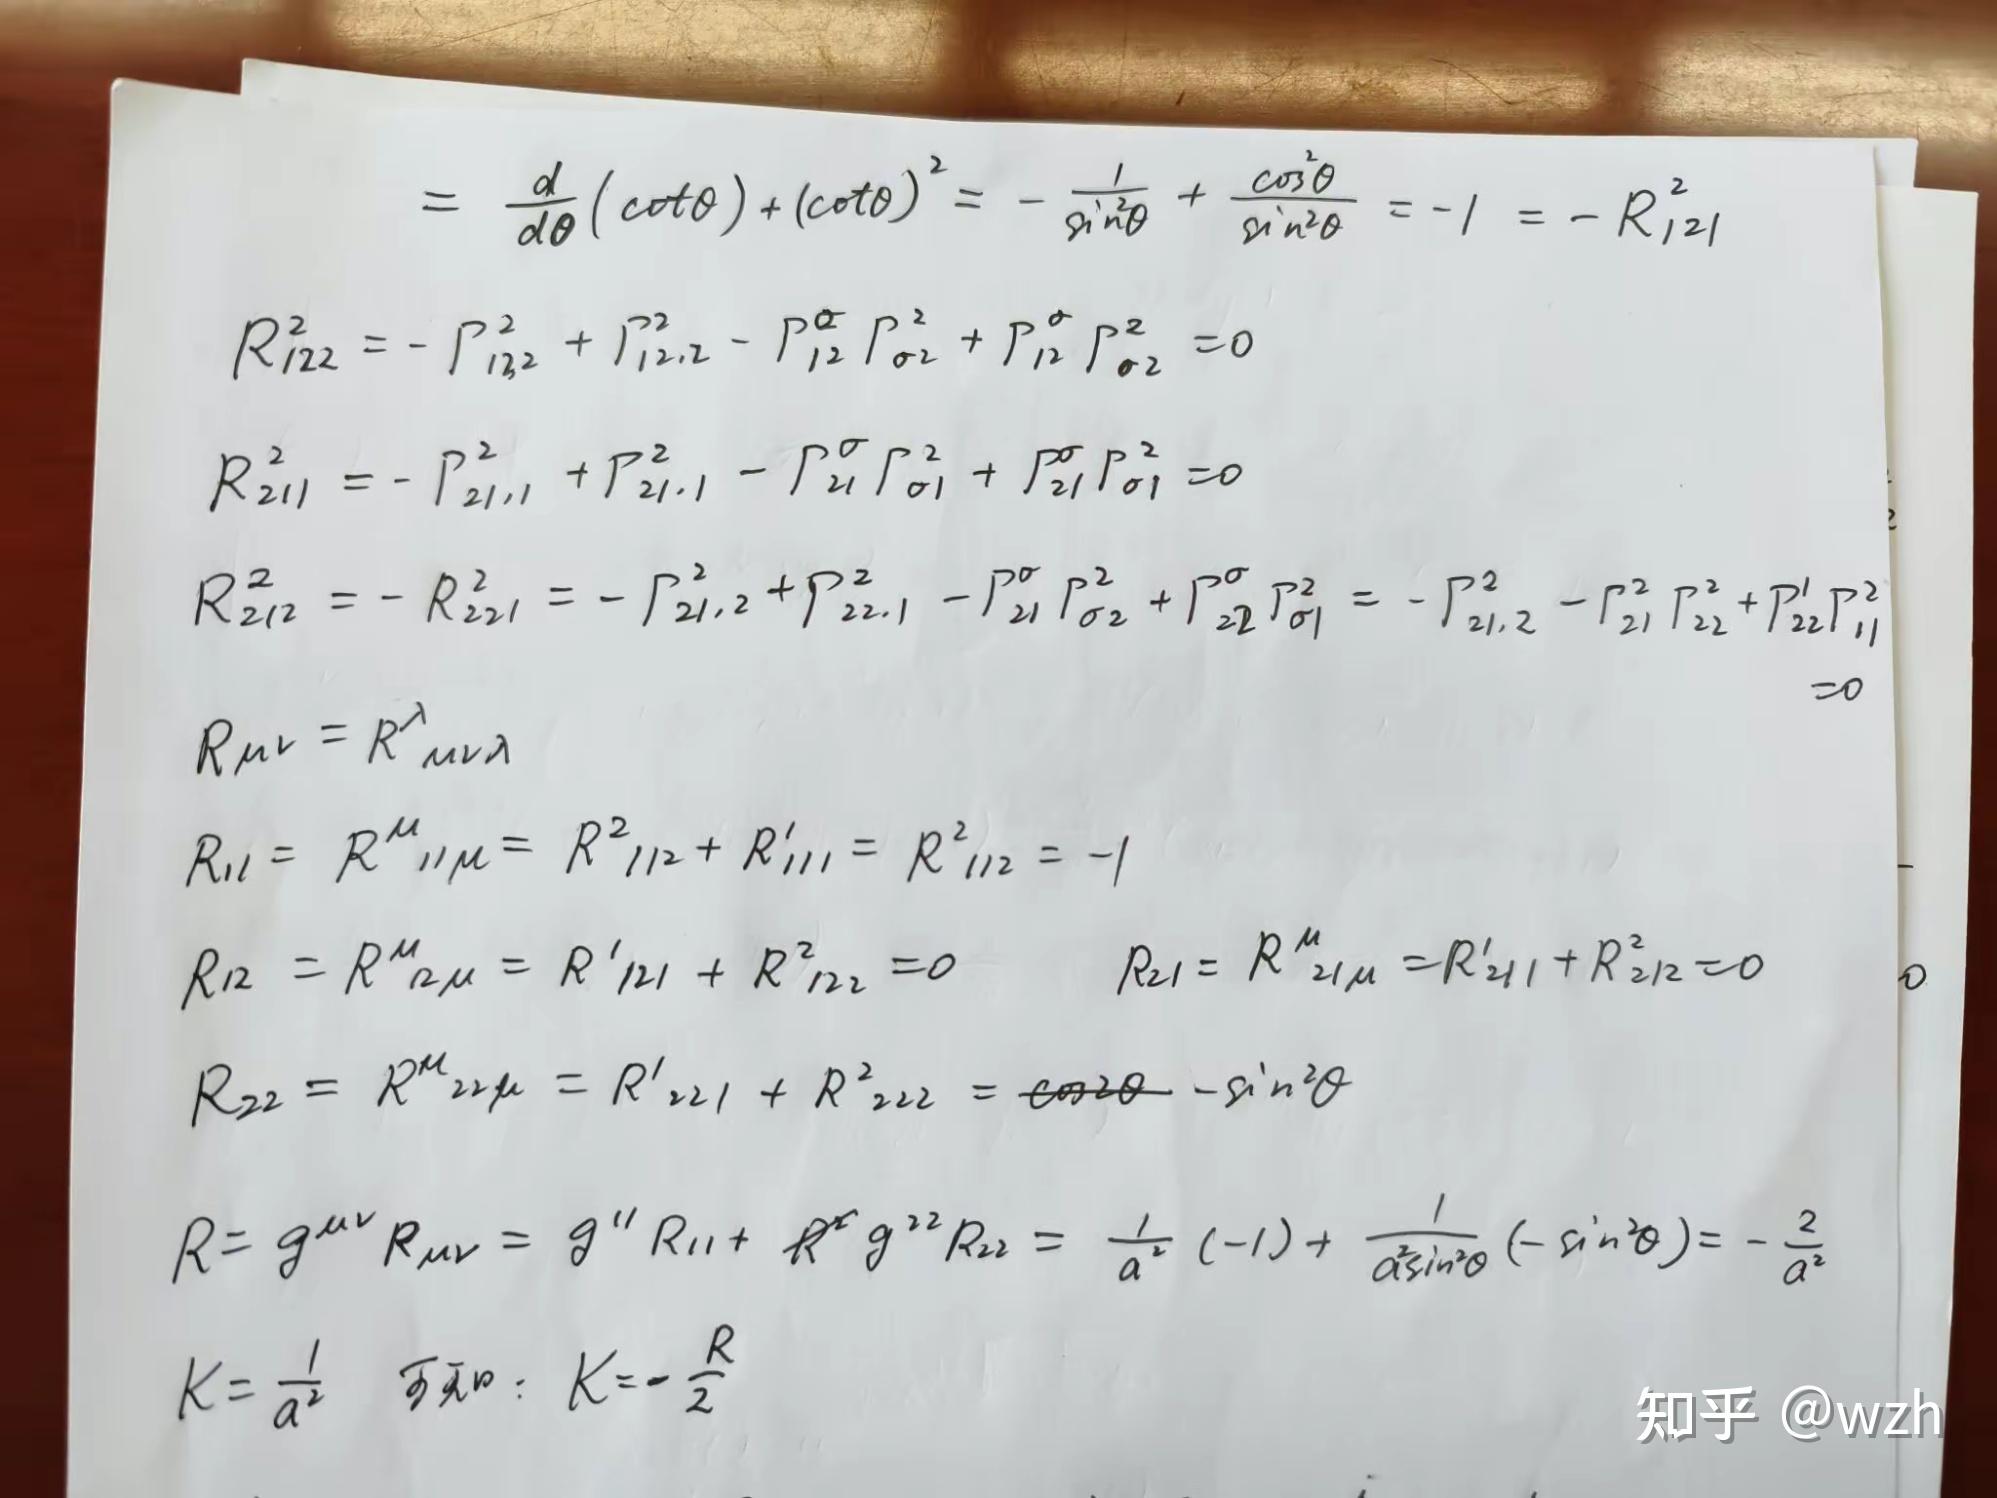 = d/dθ (cotθ) + (cotθ)² = - 1/sin²θ + cos²θ/sin²θ = -1 = - R²₁₂₁
R²₁₂₂ = - Γ²₁₂,₂ + Γ²₁₂,₂ - Γ^σ₁₂ Γ²_σ2 + Γ^σ₁₂ Γ²_σ2 = 0
R²₂₁₁ = - Γ²₂₁,₁ + Γ²₂₁,₁ - Γ^σ₂₁ Γ²_σ1 + Γ^σ₂₁ Γ²_σ1 = 0
R²₂₁₂ = - R²₂₂₁ = - Γ²₂₁,₂ + Γ²₂₂,₁ - Γ^σ₂₁ Γ²_σ2 + Γ^σ₂₂ Γ²_σ1 = - Γ²₂₁,₂ - Γ²₂₁ Γ²₂₂ + Γ¹₂₂ Γ²₁₁
= 0
R_μν = R^λ_μνλ
R₁₁ = R^μ_11μ = R²₁₁₂ + R¹₁₁₁ = R²₁₁₂ = -1
R₁₂ = R^μ_12μ = R¹₁₂₁ + R²₁₂₂ = 0 R₂₁ = R^μ_21μ = R¹₂₁₁ + R²₂₁₂ = 0
R₂₂ = R^μ_22μ = R¹₂₂₁ + R²₂₂₂ = cos2θ - sin²θ
R = g^μν R_μν = g¹¹ R₁₁ + g²² R₂₂ = 1/a² (-1) + 1/a²sin²θ (- sin²θ) = - 2/a²
K = 1/a² 可知: K = - R/2
知乎 @wzh